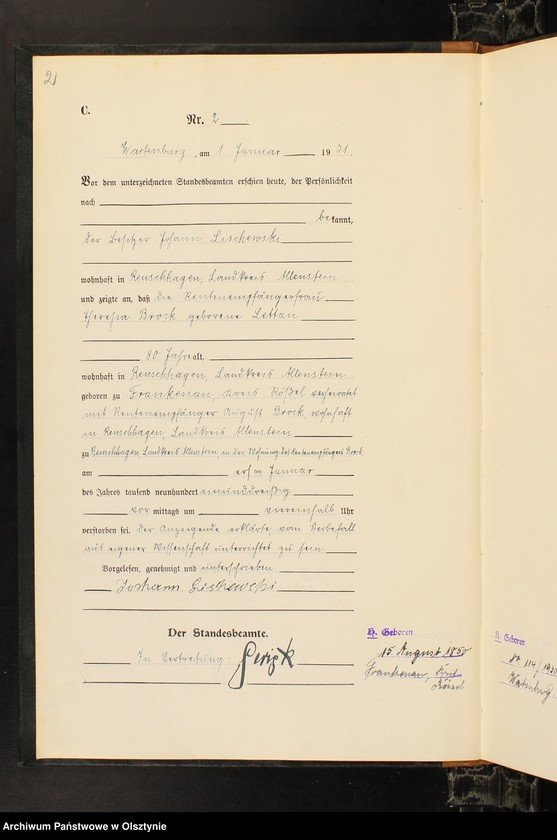 21
C.
Nr. 2
Wartenburg, am 1 Januar 1931.
Vor dem unterzeichneten Standesbeamten erschien heute, der Persönlichkeit
nach
bekannt,
der Besitzer Johann Lischewski
wohnhaft in Reuschhagen, Landkreis Allenstein
und zeigte an, daß die Rentenempfängerfrau
Theresia Brock geborene Lettau
80 Jahre alt,
wohnhaft in Reuschhagen, Landkreis Allenstein
geboren zu Frankenau, Kreis Rößel verheiratet
mit Rentenempfänger August Brock, wohnhaft
in Reuschhagen, Landkreis Allenstein
zu Reuschhagen, Landkreis Allenstein, in der Wohnung des Rentenempfängers Brock
am ersten Januar
des Jahres tausend neunhundert einunddreißig
vor mittags um viereinhalb Uhr
verstorben sei. Der Anzeigende erklärte, vom Sterbefall
aus eigener Wissenschaft unterrichtet zu sein
Vorgelesen, genehmigt und unterschrieben
Johann Lischewski
Der Standesbeamte.
In Vertretung:
H. Geboren
15 August 1850
Frankenau, Kreis
Rössel
H. Geboren
Nr. 114/1930
Wartenburg
Archiwum Państwowe w Olsztynie